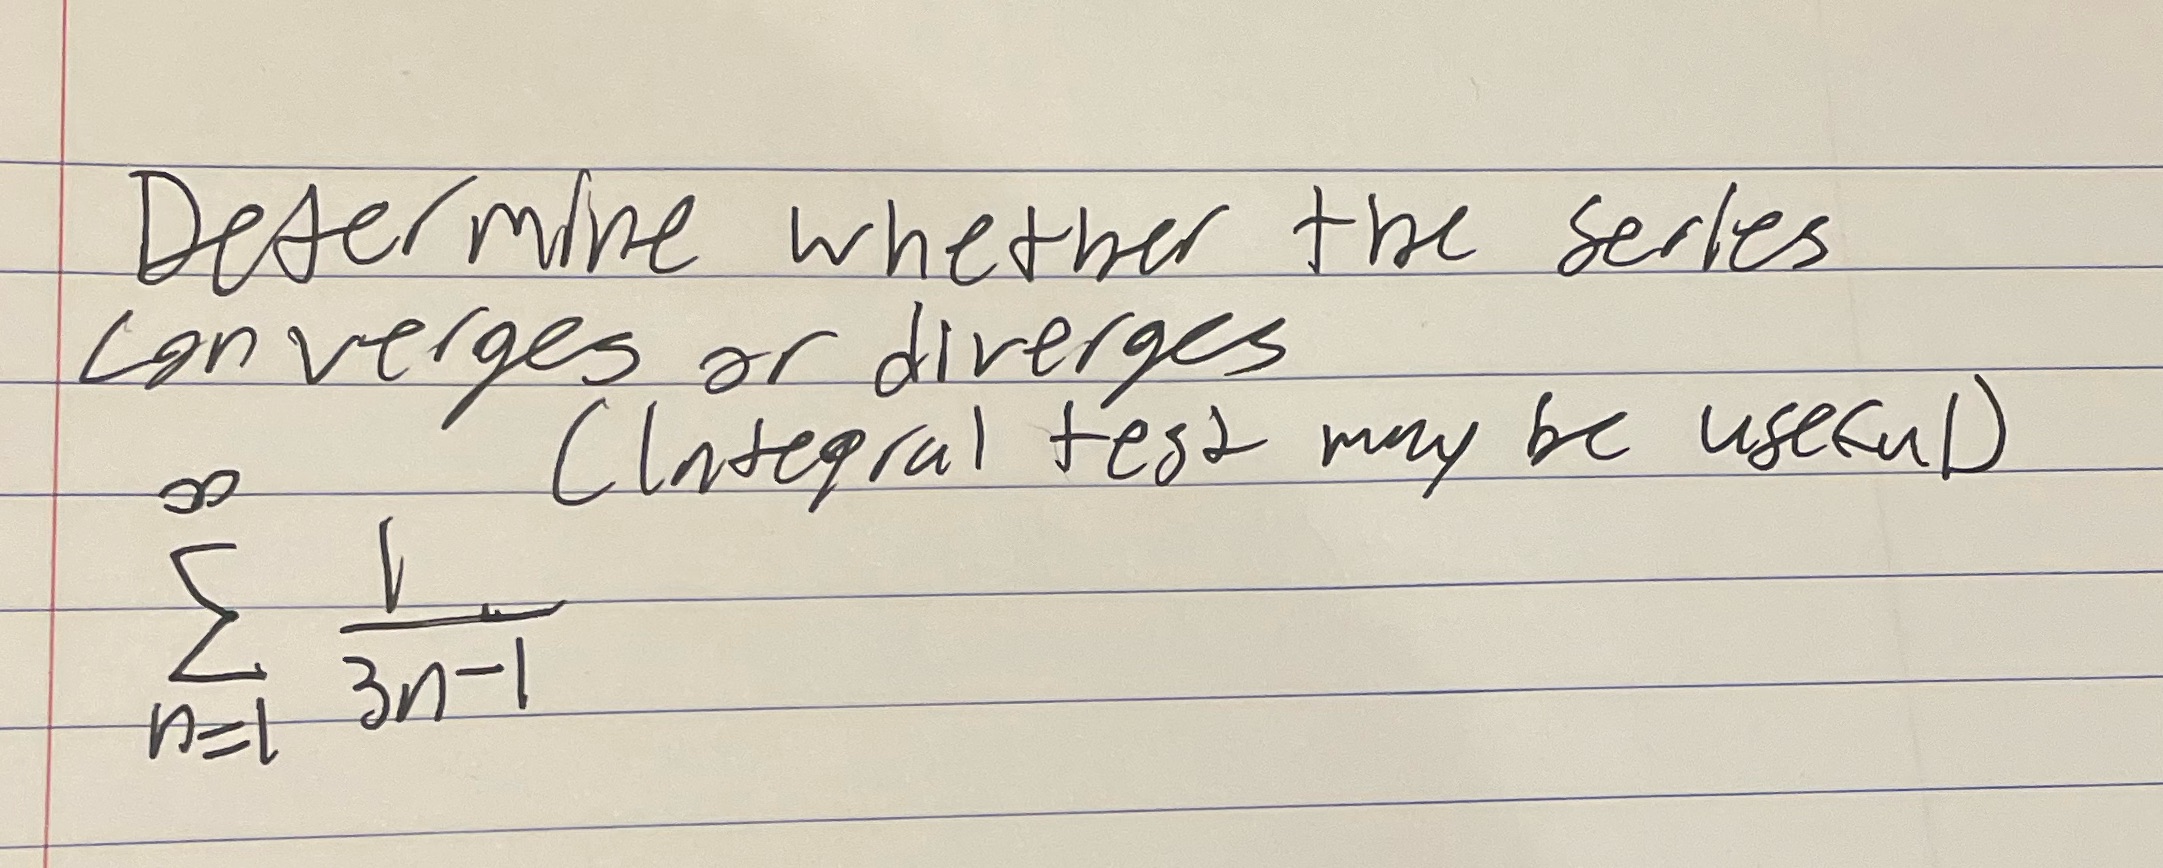 Determine whether the series
converges or diverges
(Integral test may be useful)
∞
∑ 1/(3n-1)
n=1